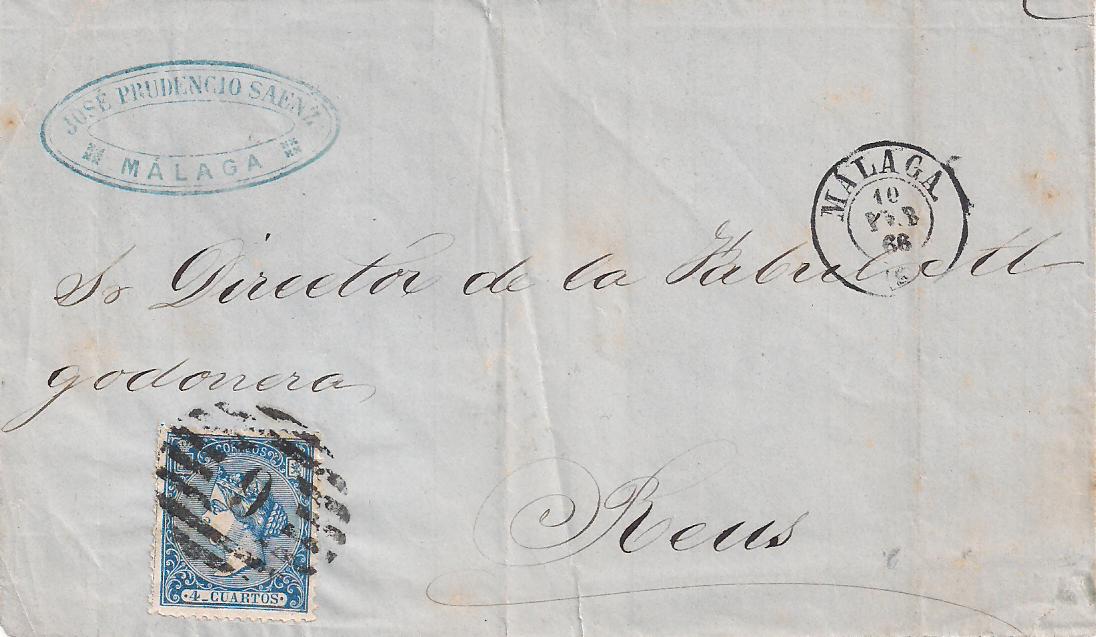 JOSÉ PRUDENCIO SAENZ
MÁLAGA
MALAGA
10
FEB
66
Sr Director de la Fabril Al
godonera
Reus
CORREOS
9
4_CUARTOS